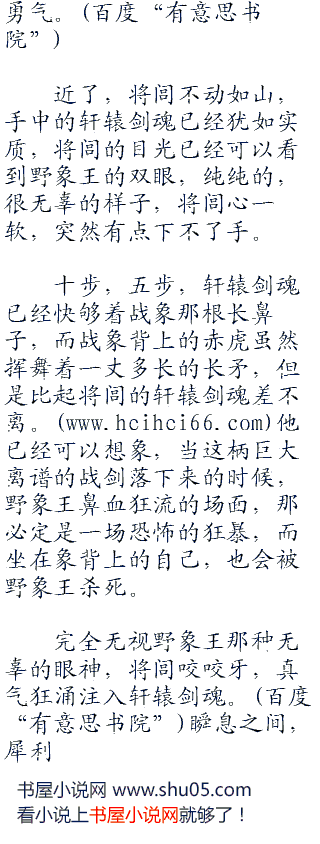 勇气。(百度“有意思书
院”)
近了，将闾不动如山，
手中的轩辕剑魂已经犹如实
质，将闾的目光已经可以看
到野象王的双眼，纯纯的，
很无辜的样子，将闾心一
软，突然有点下不了手。
十步，五步，轩辕剑魂
已经快够着战象那根长鼻
子，而战象背上的赤虎虽然
挥舞着一丈多长的长矛，但
是比起将闾的轩辕剑魂差不
离。(www.hcihci66.com)他
已经可以想象，当这柄巨大
离谱的战剑落下来的时候，
野象王鼻血狂流的场面，那
必定是一场恐怖的狂暴，而
坐在象背上的自己，也会被
野象王杀死。
完全无视野象王那种无
辜的眼神，将闾咬咬牙，真
气狂涌注入轩辕剑魂。(百度
“有意思书院”)瞬息之间，
犀利
书屋小说网 www.shu05.com
看小说上书屋小说网就够了！